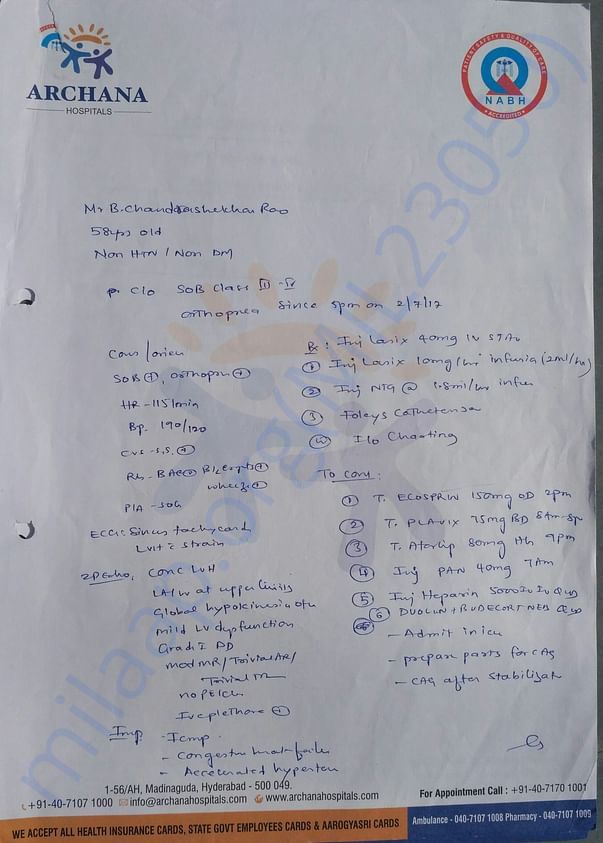 ARCHANA
HOSPITALS
PATIENT SAFETY & QUALITY OF CARE
NABH
ACCREDITED
Mr B. Chandrashekhar Rao
58yrs old
Non HTN / Non DM
c/o SOB Class III - IV
orthopnea since 5pm on 2/7/17
Cons/orien
SOB +, orthopn +
HR - 115/min
Bp. 190/120
CVS - S.S. +
RS - BAE + B/L crepts +
wheeze +
P/A - soft
ECG: Sinus tachycard
LVH c strain
2D Echo, Conc LVH
LA/LV at upper limits
Global hypokinesia of LV
mild LV dysfunction
Grade I DD
mod MR / Trivial AR /
Trivial TR
no PE/Clot
IVC plethora +
Imp - Icmp
- Congestive heart failure
- Accelerated hyperten
Rx: Inj Lasix 40mg IV STAT
1 Inj Lasix 10mg/hr infusin (2ml/hr)
2 Inj NTG @ 1.8ml/hr infus
3 Foleys Catheterisa
4 I/o Charting
To cont:
1 T. ECOSPRIN 150mg OD 2pm
2 T. PLAVIX 75mg BD 8am-8p
3 T. Atorlip 80mg HS 9pm
4 Inj PAN 40mg 7Am
5 Inj Heparin 5000IU IV QID
6 DUOLIN + BUDECORT NEB
- Admit in icu
- prepare parts for CAG
- CAG after stabilizat
milaap.org (MIL 23050)
1-56/AH, Madinaguda, Hyderabad - 500 049.
+91-40-7107 1000 info@archanahospitals.com www.archanahospitals.com
For Appointment Call : +91-40-7170 1001
WE ACCEPT ALL HEALTH INSURANCE CARDS, STATE GOVT EMPLOYEES CARDS & AAROGYASRI CARDS
Ambulance - 040-7107 1008 Pharmacy - 040-7107 1009